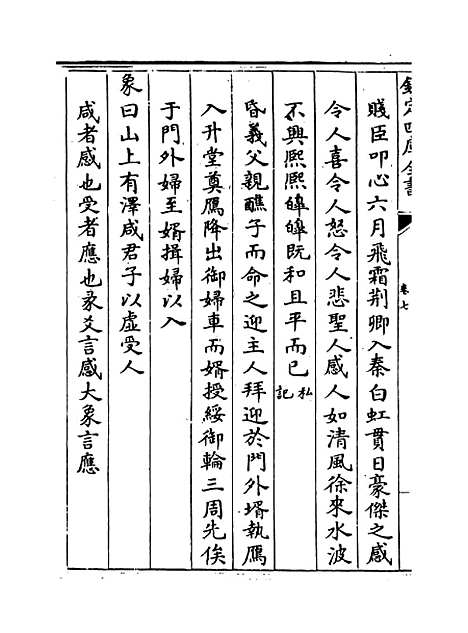 欽定四庫全書
卷七
賤臣叩心六月飛霜荆卿入秦白虹貫日豪傑之感
令人喜令人怒令人悲聖人感人如清風徐來水波
不興熙熙皥皥既和且平而已私記
昏義父親醮子而命之迎主人拜迎於門外壻執鴈
入升堂奠鴈降出御婦車而婿授綏御輪三周先俟
于門外婦至婿揖婦以入
象曰山上有澤咸君子以虛受人
咸者感也受者應也彖爻言感大象言應